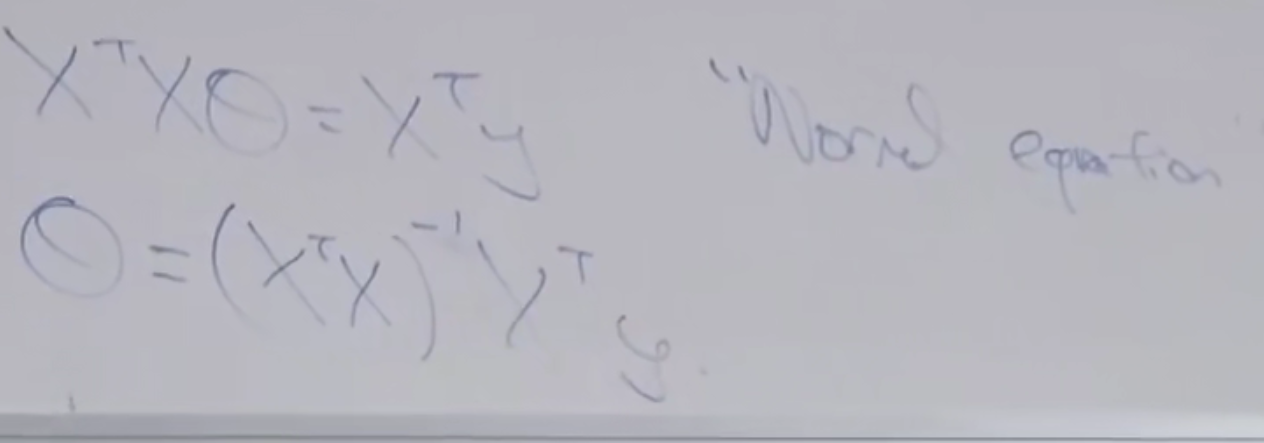 XᵀXθ = Xᵀy "Normal equation"
θ = (XᵀX)⁻¹Xᵀy.